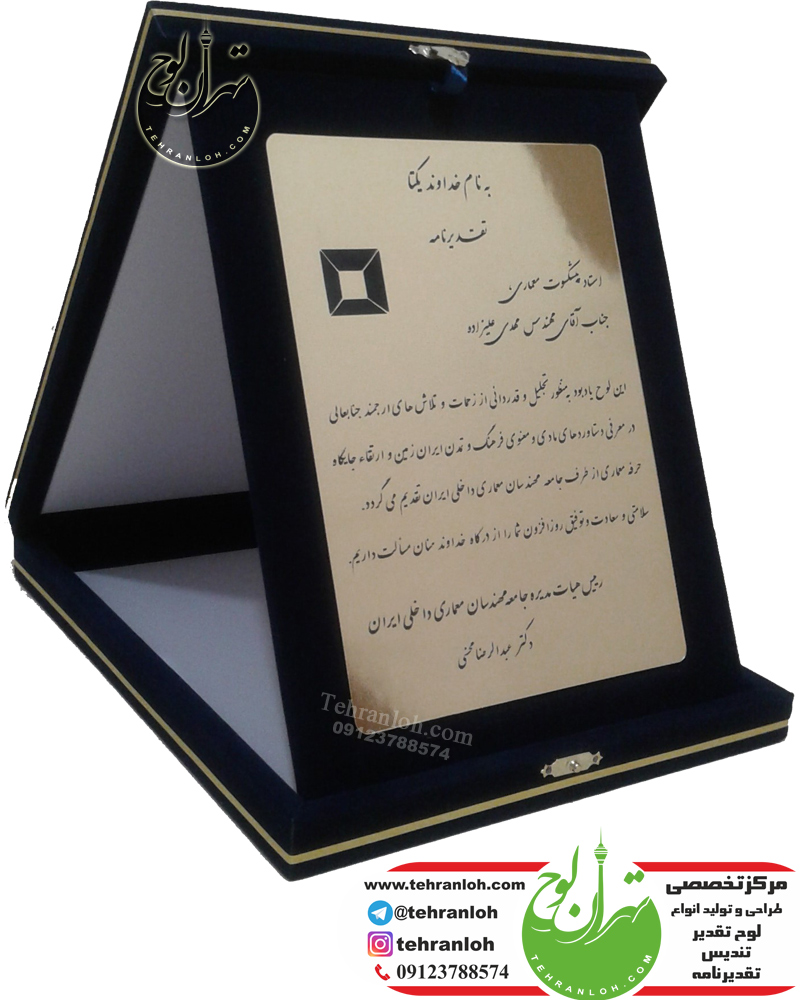 تهران لوح
TEHRANLOH.COM
به نام خداوند یکتا
تقدیرنامه
استاد پیشکسوت معماری،
جناب آقای مهندس مهدی علیزاده
این لوح یادبود به منظور تجلیل و قدردانی از زحمات و تلاش های ارجمند جنابعالی
در معرفی دستاوردهای مادی و معنوی فرهنگ و تمدن ایران زمین و ارتقاء جایگاه
حرفه معماری از طرف جامعه مهندسان معماری داخلی ایران تقدیم می گردد.
سلامتی و سعادت و توفیق روزافزون شما را از درگاه خداوند منان مسألت داریم.
رییس هیات مدیره جامعه مهندسان معماری داخلی ایران
دکتر عبدالرضا محسنی
Tehranloh.com
09123788574
www.tehranloh.com
@tehranloh
tehranloh
09123788574
تهران لوح
TEHRANLOH.COM
مرکز تخصصی
طراحی و تولید انواع
لوح تقدیر
تندیس
تقدیرنامه